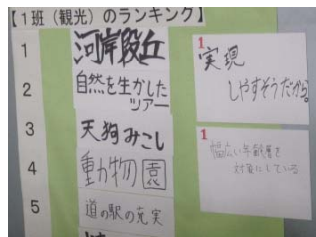 【1班（観光）のランキング】
1
河岸段丘
2
自然を生かした
ツアー
3
天狗みこし
4
動物園
5
道の駅の充実
1
実現
しやすそうだから
1
幅広い年齢層を
対象にしている